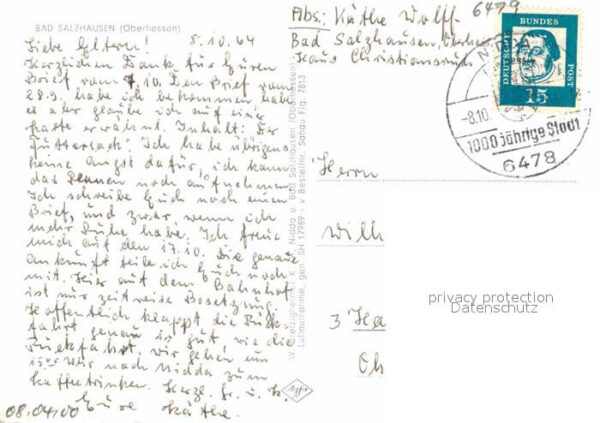 BAD SALZHAUSEN (Oberhessen)
Liebe Eltern! 8.10.64
Herzlichen Dank für Euren
Brief vom 7.10. Den Brief vom
28.9. habe ich bekommen, habe
es aber glaube ich auf einer
Karte erwähnt. Inhalt: Der
Futtersack! Ich habe übrigens
keine Angst dafür, ich kann
das Rennen noch aufnehmen.
Ich schreibe Euch noch einen
Brief, und zwar wenn ich
mehr Ruhe habe. Ich freue
mich auf den 17.10. Die genaue
Ankunft teile ich Euch noch
mit. Hier auf dem Bahnhof
ist nur zeitweise Besetzung.
Hoffentlich klappt die Rück-
fahrt genau so gut, wie die
Wir gehen um
15.00 Uhr nach Nidda zum
Kaffeetrinken. Herzl. Gr. u. K.
Eure Käthe.
08.04.00
Nidda u. Bad Salzhausen (Oberhessen)
Luftaufnahme, gen. SH 17989 - v Bestellnr. Sahau Fig. 7813
Agfa
Abs: Käthe Wolff
6479
Bad Salzhausen, Oberhe
Haus Christiansruh
DEUTSCHE BUNDES POST
15
NIDDA
-8.10.
1000 jährige Stadt
6478
Herrn
Wilh
3 Ha
Oh
privacy protection
Datenschutz